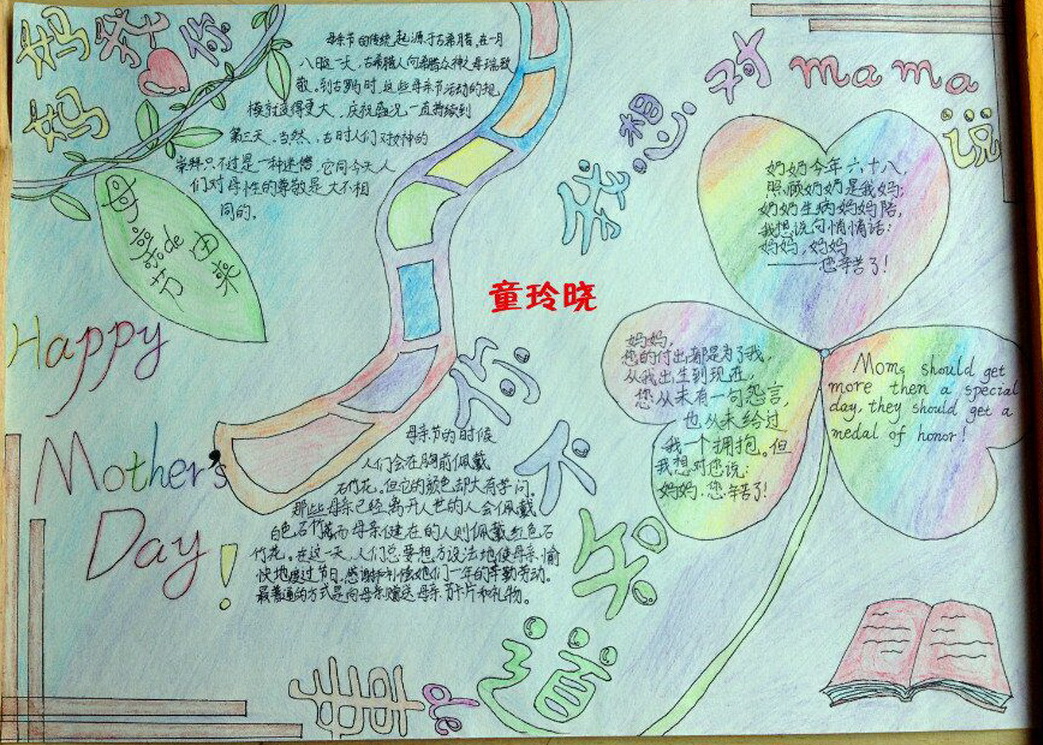 妈妈
我爱你
母亲节de由来
母亲节的传统起源于古希腊。在一月
八晚一天,古希腊人向希腊众神之母瑞致
敬。到古罗马时,这些母亲节活动的规
模就变得更大,庆祝盛况一直持续到
第三天。当然,古时人们对女神的
崇拜只不过是一种迷信,它同今天人
们对母性的尊敬是大不相
同的。
Happy
Mother's
Day!
母亲节的时候
人们会在胸前佩戴
石竹花。但它的颜色却大有学问。
那些母亲已经离开人世的人会佩戴
白色石竹花而母亲健在的人则佩戴红色石
竹花。在这一天,人们总要想方设法地使母亲愉
快地度过节日。感谢和补偿她们一年的辛勤劳动。
最普通的方式是向母亲赠送母亲节卡片和礼物。
童玲晓
我想对mama说
奶奶今年六十八,
照顾奶奶是我妈;
奶奶生病妈妈陪,
我想说句悄悄话:
妈妈,妈妈
——您辛苦了!
妈妈,
您的付出都是为了我,
从我出生到现在,
您从未有一句怨言,
也从未给过
我一个拥抱。但
我想对您说:
妈妈,您辛苦了!
Mom, should get
more then a special
day, they should get a
medal of honor!
你不知道de